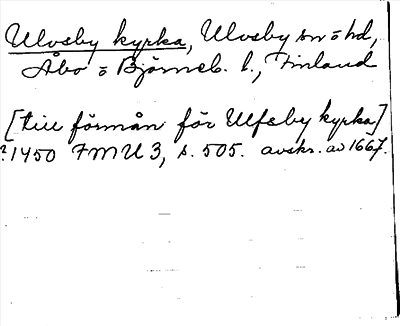 Ulvsby kyrka, Ulvsby sn o hd,
Åbo o Björneb. l., Finland
[till förmån för Ulfsby kyrka]
?1450 FMU 3, s. 505. avskr. av 1667.